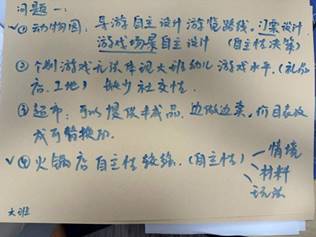 问题一:
✓① 动物园:导游自主设计游览路线,
游戏场景自主设计 (自主性决策)
② 个别游戏无法体现大班幼儿游戏水平.(礼品
店.工地) 缺少社交性.
③ 超市:可以提供半成品.边做边卖,价目表改
成可替换的.
✓④ 火锅店自主性较强.(自主性) 情境
材料
玩法
大班